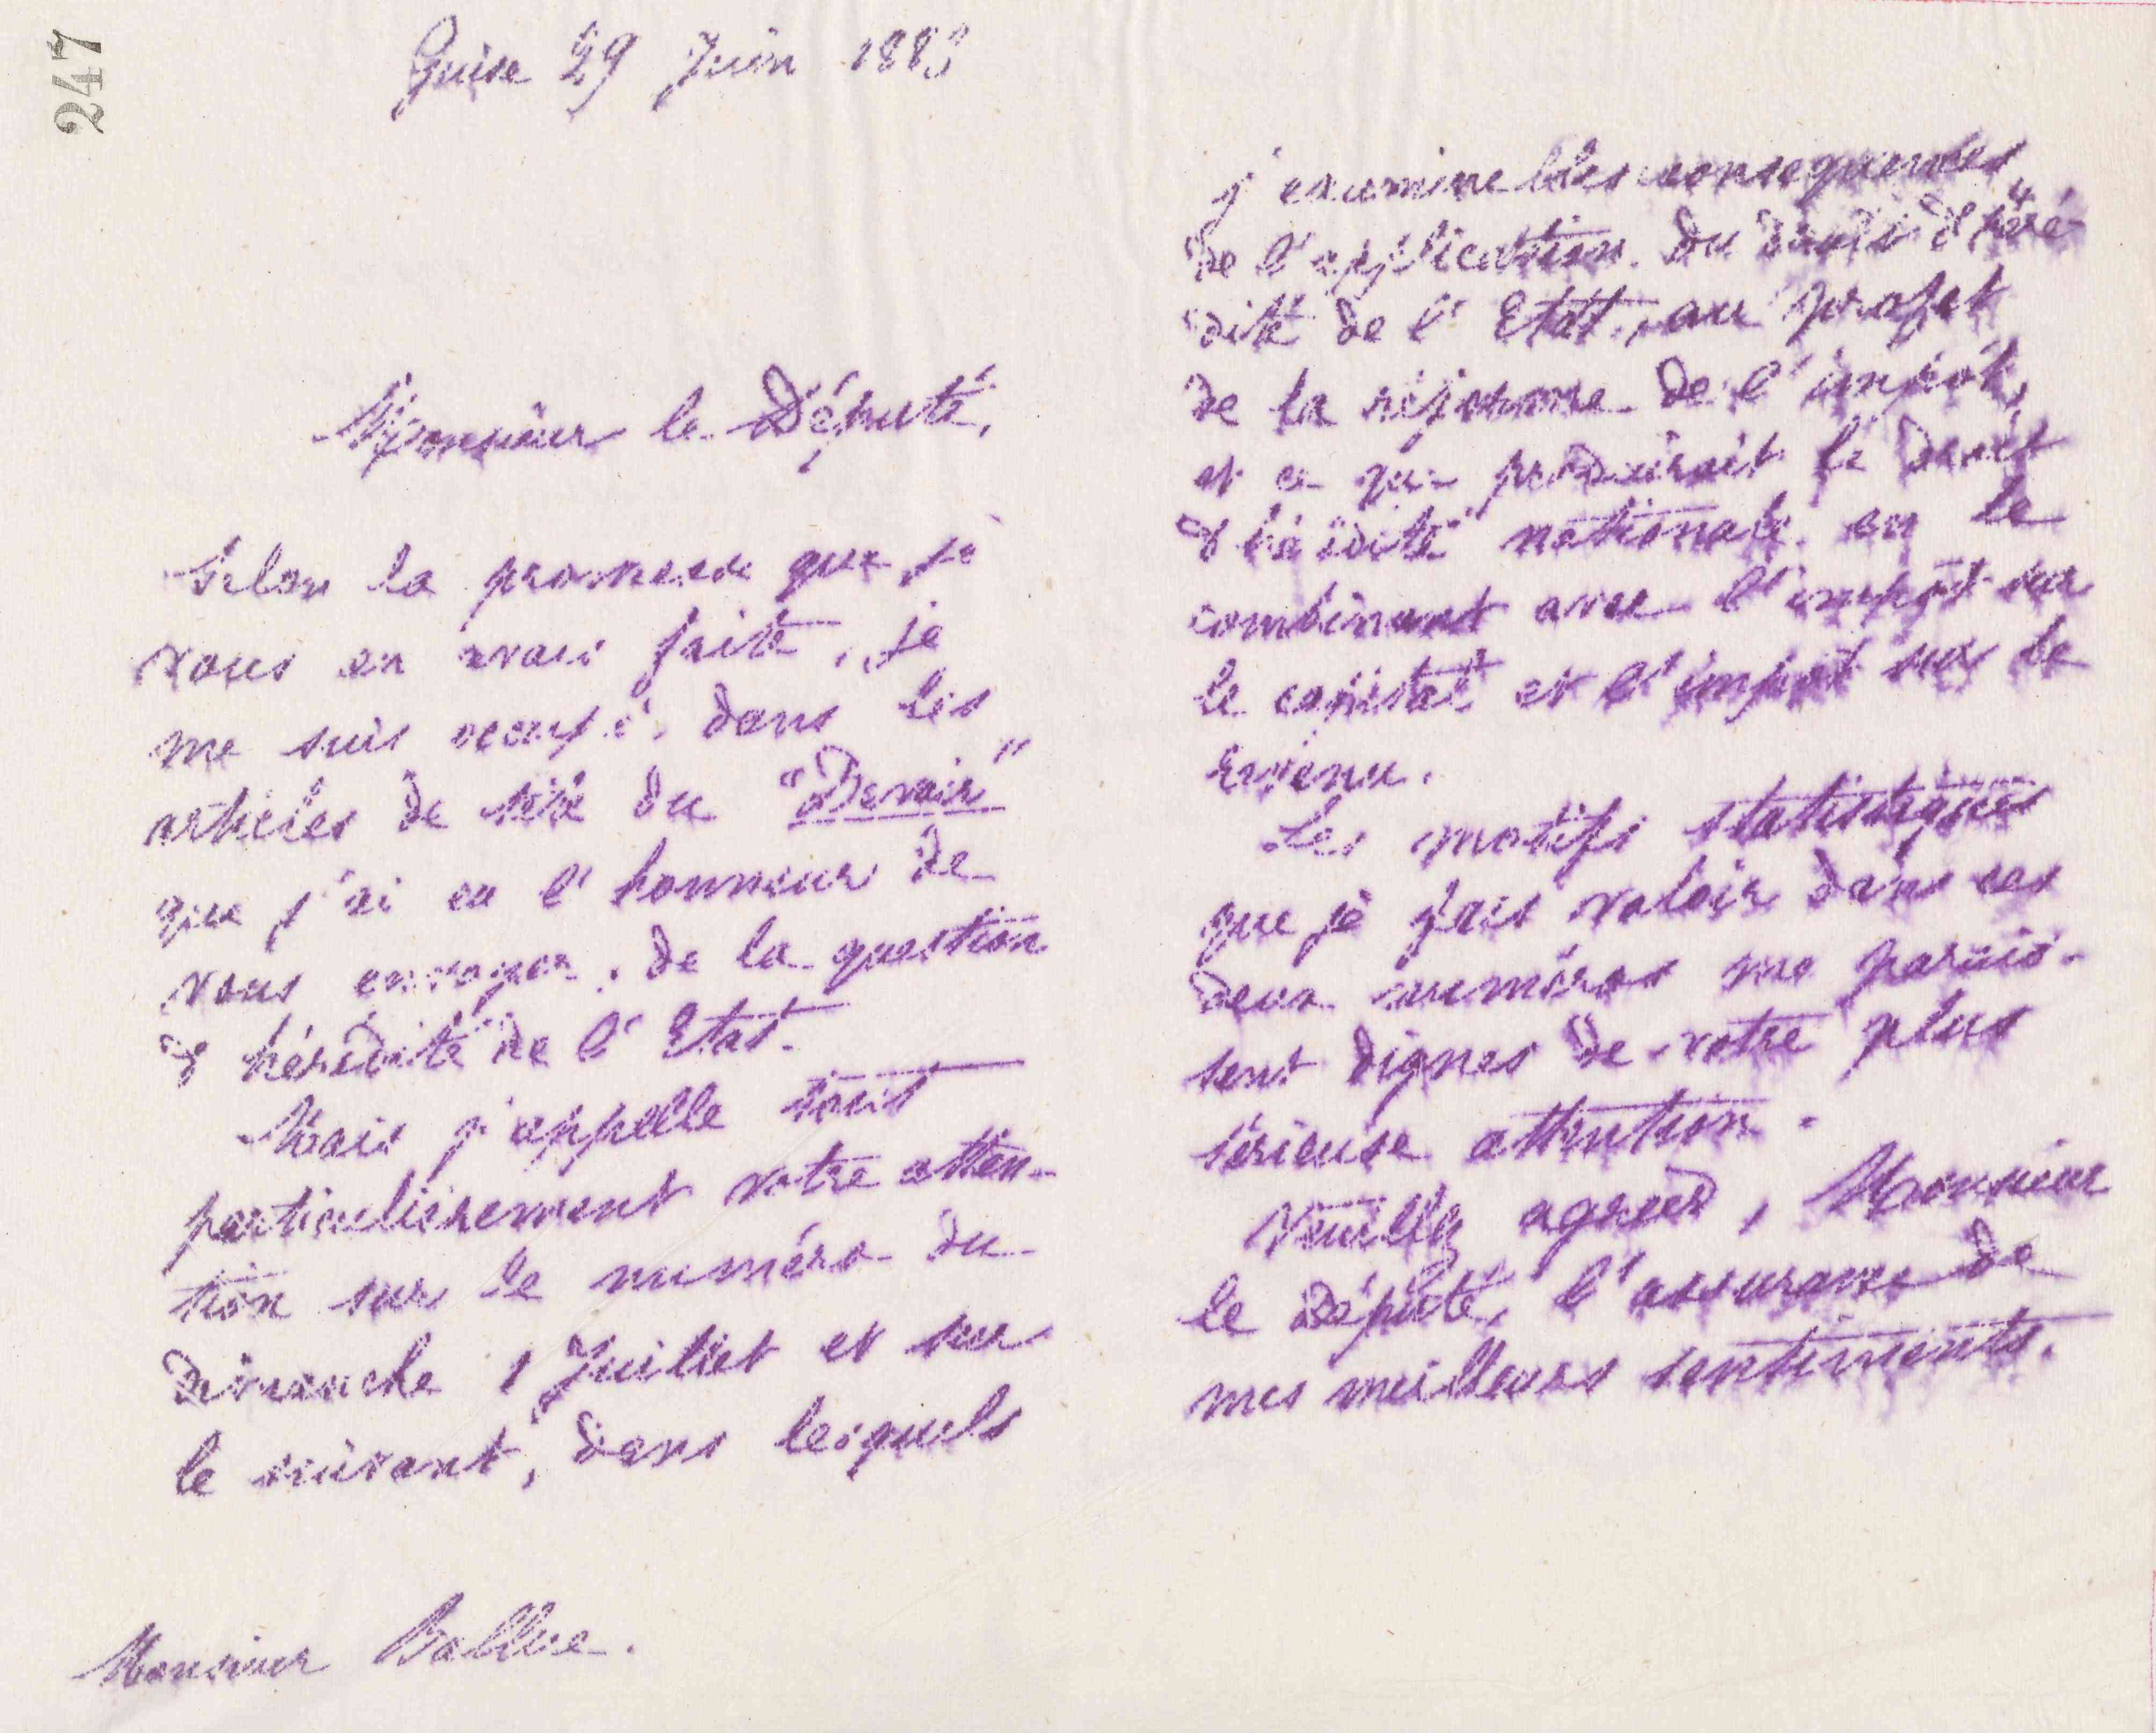 247
Guise 29 Juin 1883
Monsieur le Député,
Selon la promesse que je
vous en avais faite, je
me suis occupé, dans les
articles de tête du "Devoir"
que j'ai eu l'honneur de
vous envoyer, de la question
d'hérédité de l'Etat.
Mais j'appelle tout
particulièrement votre atten-
tion sur le numéro du
dimanche 1 Juillet et sur
le suivant, dans lesquels
Monsieur Ballue.
j'examine les conséquences
de l'application du droit d'héré-
dité de l'Etat, au projet
de la réforme de l'impôt,
et ce que produirait le droit
d'hérédité nationale en le
combinant avec l'impôt sur
le capital et l'impôt sur le
revenu.
Les motifs statistiques
que je fais valoir dans ces
deux numéros me parais-
sent dignes de votre plus
sérieuse attention.
Veuillez agréer, Monsieur
le Député, l'assurance de
mes meilleurs sentiments.